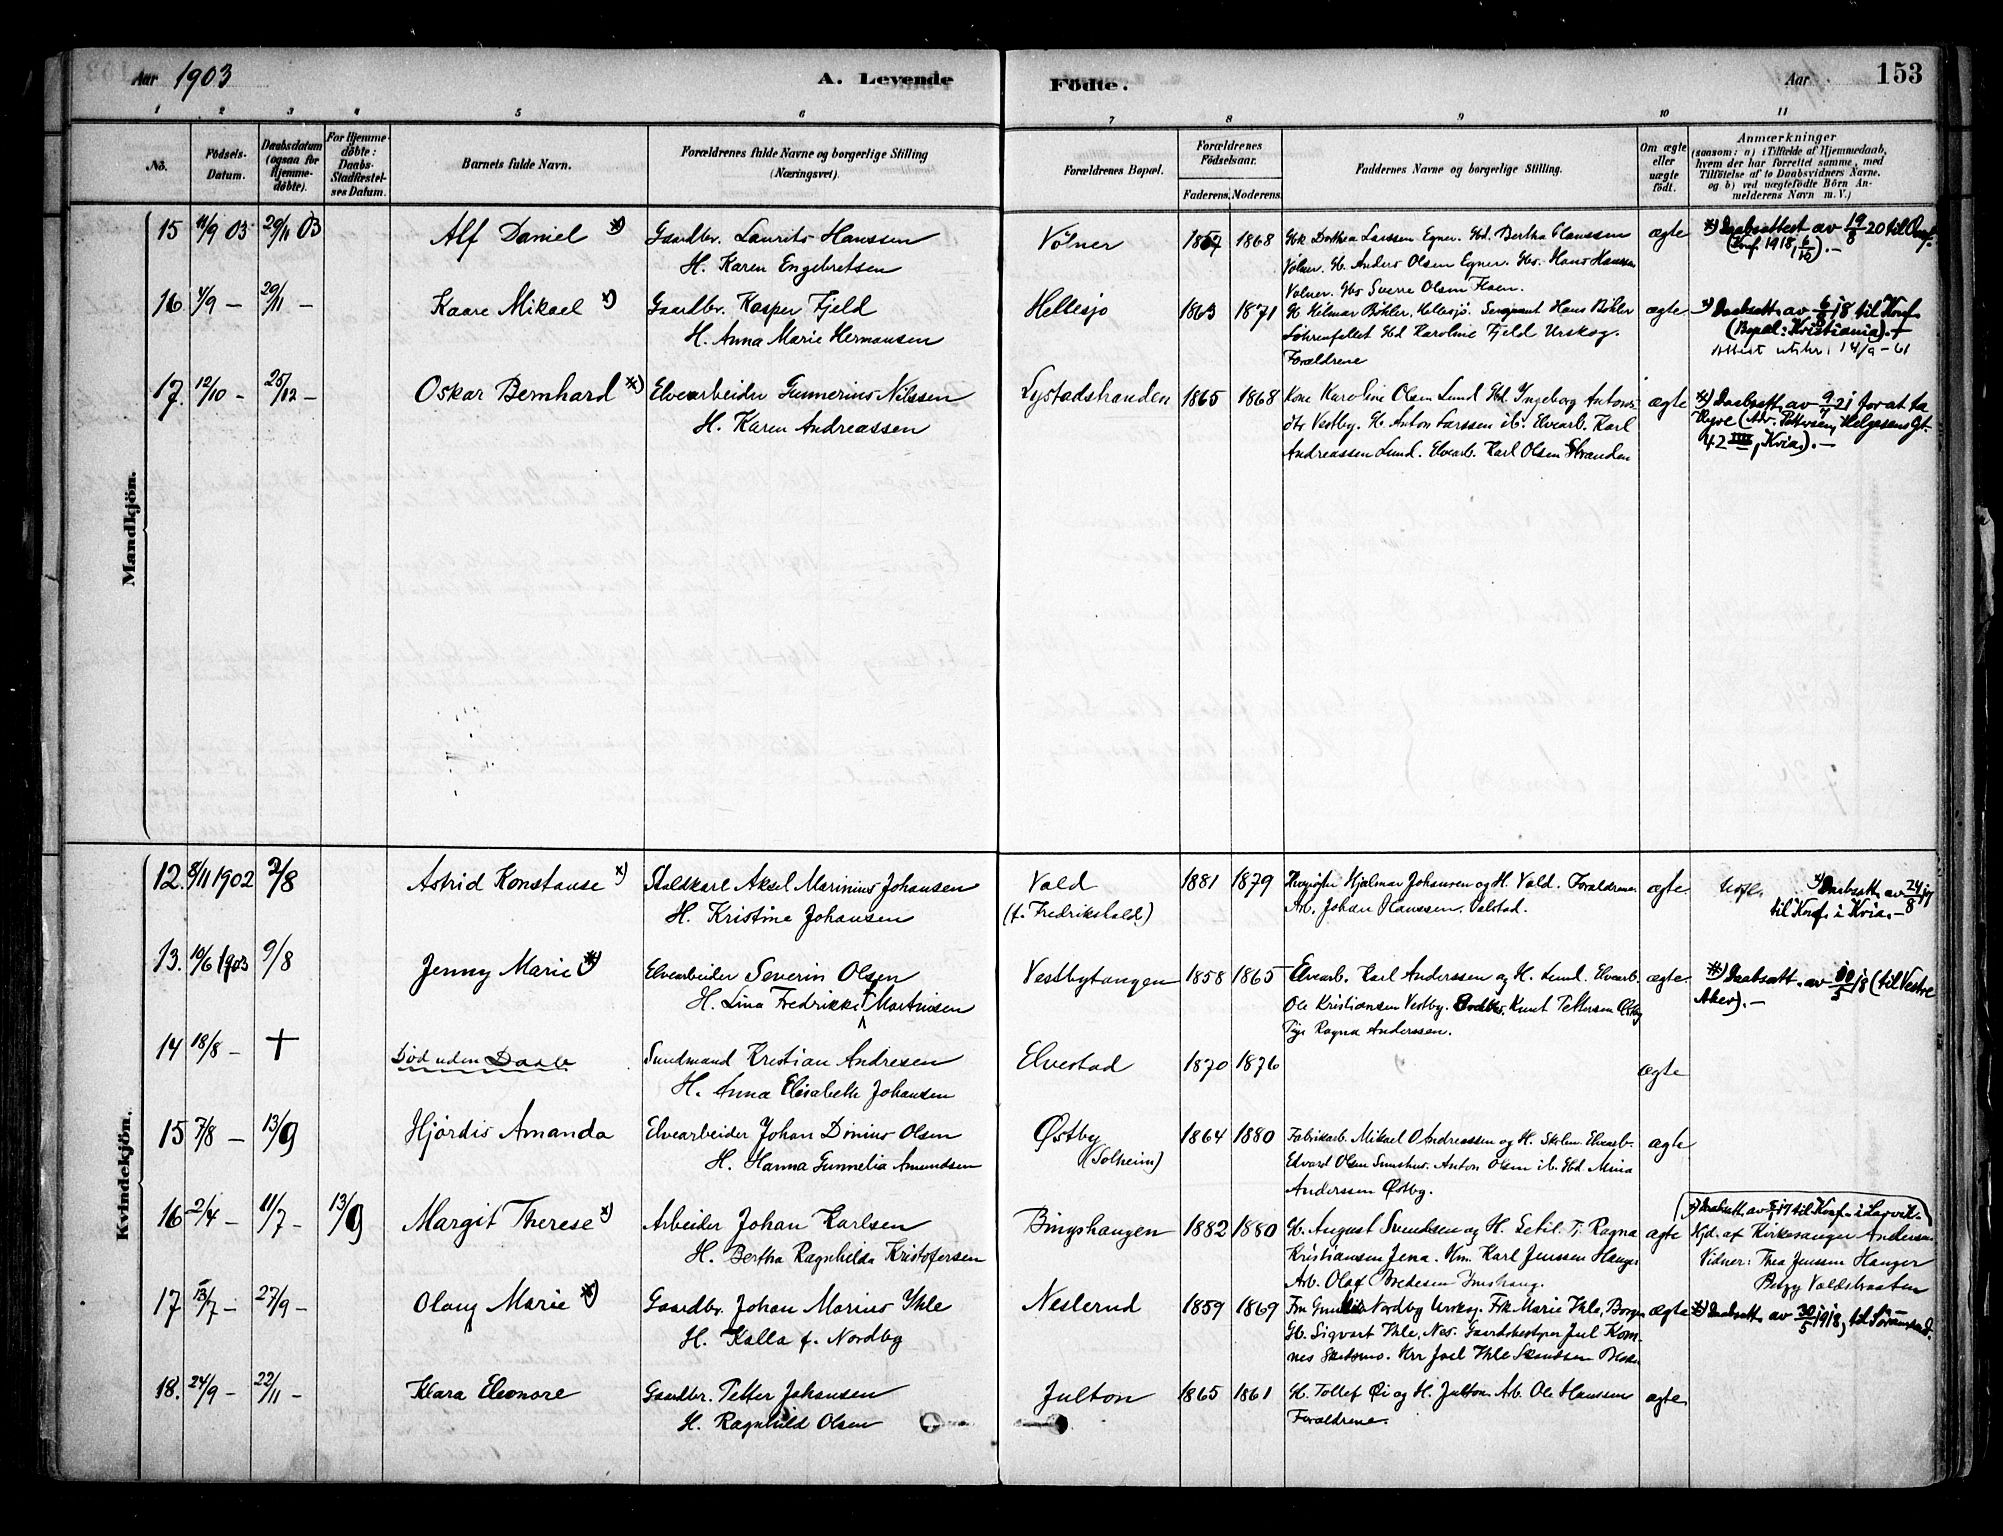 Aar 1903
A. Levende
Födte.
Aar
153
1 2 3 4 5 6 7 8 9 10 11
No.
Födsels-Datum.
Daabsdatum (ogsaa for Hjemme-döbte).
For Hjemme-döbte: Daabs-Stadfæstel-ses Datum.
Barnets fulde Navn.
Forældrenes fulde Navne og borgerlige Stilling (Næringsvei).
Forældrenes Bopæl.
Forældrenes Födselsaar.
Faderens. Moderens.
Faddernes Navne og borgerlige Stilling.
Om ægte eller uægte födt.
Anmærkninger
(saasom: a) i Tilfælde af Hjemmedaab, hvem der har forrettet samme, med Tilföielse af to Daabsvidners Navne. og b) ved uægtefödte Börn An-melderens Navn m. V.)
Mandkjön.
15 11/9 03 29/11 03 Alf Daniel *) Gaardbr. Laurits Hanssen
H. Karen Engebretsen
Völner 1864 1868 Gk Dorthea Larssen Egner. Gd. Bertha Clanssen
Völner. G. Anders Olsen Egner. Gs. Hans Hanssen
Völner. Gs Sverre Olsen Haen.
ægte *) Daabsattest av 19/8 20 til
(Knf. 1918, 6/10). —
16 4/9 — 29/11 — Kaare Mikael *) Gaardbr. Kasper Fjeld
H. Anna Marie Hermansen
Hellesjo 1863 1871 G. Hilmar Böhler, Hellesjö. Sergeant Hans Böhler
Gd Karoline Fjeld Urskog.
Forældrene
ægte *) Daabsatt. av 6/8 18 til Knf.
(Bopæl: Kristiania). —
Attest utskr. 14/9 - 61
17. 12/10 — 25/12 — Oskar Bernhard *) Elvearbeider Gunnerius Nilssen
H. Karen Andreassen
Lystadstranden 1865 1868 Kone Karoline Olsen Lund Gd. Ingeborg Antons-
dtr Vestby. G. Anton Larssen ib. Elvearb. Karl
Andreassen Lund. Elvearb. Karl Olsen Stranden
ægte *) Daabsatt. av 9/7 21 for at ta
Hyre (Adr. Pettersen, Helgesens Gt.
42 IIII, Kria.). —
Kvindekjön.
12. 8/11 1902 2/8 Astrid Konstanse *) Staldkarl Aksel Marinius Johansen
H. Kristine Johansen
Vald
(f. Fredrikshald)
1881 1879 Hjalmar Johansen og H. Vald. Forældrene
Arb. Johan Hanssen. Valstad.
ægte *) Daabsatt. av 24/8 17
til Knf. i Kria. —
13. 19/6 1903 9/8 Jenny Marie *) Elvearbeider Severin Olsen
H. Lina Fredrikke Martinsen
Vestbytangen 1858 1865 Elvearb. Karl Anderssen og H. Lund. Elvearb.
Ole Kristiansen Vestby. Knut Pettersen Östby
Pige Ragna Anderssen.
ægte. *) Daabsatt. av 18 (til Vestre
Aker). —
14 18/8 — + Död uden Daab Sundmand Kristian Andresen
H. Anna Elisabeth Johansen
Elvestad 1870 1876 ægte
15 7/8 — 13/9 Hjördis Amanda Elvearbeider Johan Dinius Olsen
H. Hanna Gunnelia Amundsen
Østby
(Solheim)
1864 1880 Fabrikarb. Mikael O Andreassen og H. Elvearb.
Edvard Olsen Sundhus. Anton Olsen ib. Gd. Mina
Anderssen Østby.
ægte
16 2/4 — 11/7 — 13/9 Margit Therese *) Arbeider Johan Karlsen
H. Bertha Ragnhilda Kristofersen
Bingshaugen 1882 1880 G. August Svendsen og H. Tj. Ragna
Kristiansen Jena. Um. Karl Jenssen Hanger
Arb. Olaf Bredesen
ægte *) Daabsatt. av 5/5 17 til Knf. i Larvik.
Hjd. af Kirkesanger Andersen
Vidner: Thea Jenssen Hanger
17 13/7 — 27/9 — Olaug Marie *) Gaardbr. Johan Marius Ihle
H. Kalla f. Nordby
Neslerud 1859 1869 Fru Nordby Urskog. Frk. Marie Ihle, Borgen
G. Sigvart Ihle, Nes. Gaardsbestyrer Juel Kom-
nes Sketsmo. Joel Ihle
ægte *) Daabsatt. av 30/5 1918, til Sörumsand.
18. 24/9 — 22/11 — Klara Eleonore Gaardbr. Petter Johansen
H. Ragnhild Olsen
Julton 1865 1861 G. Tollef Öi og H. Julton. Arb. Ole Hanssen
Forældrene.
ægte